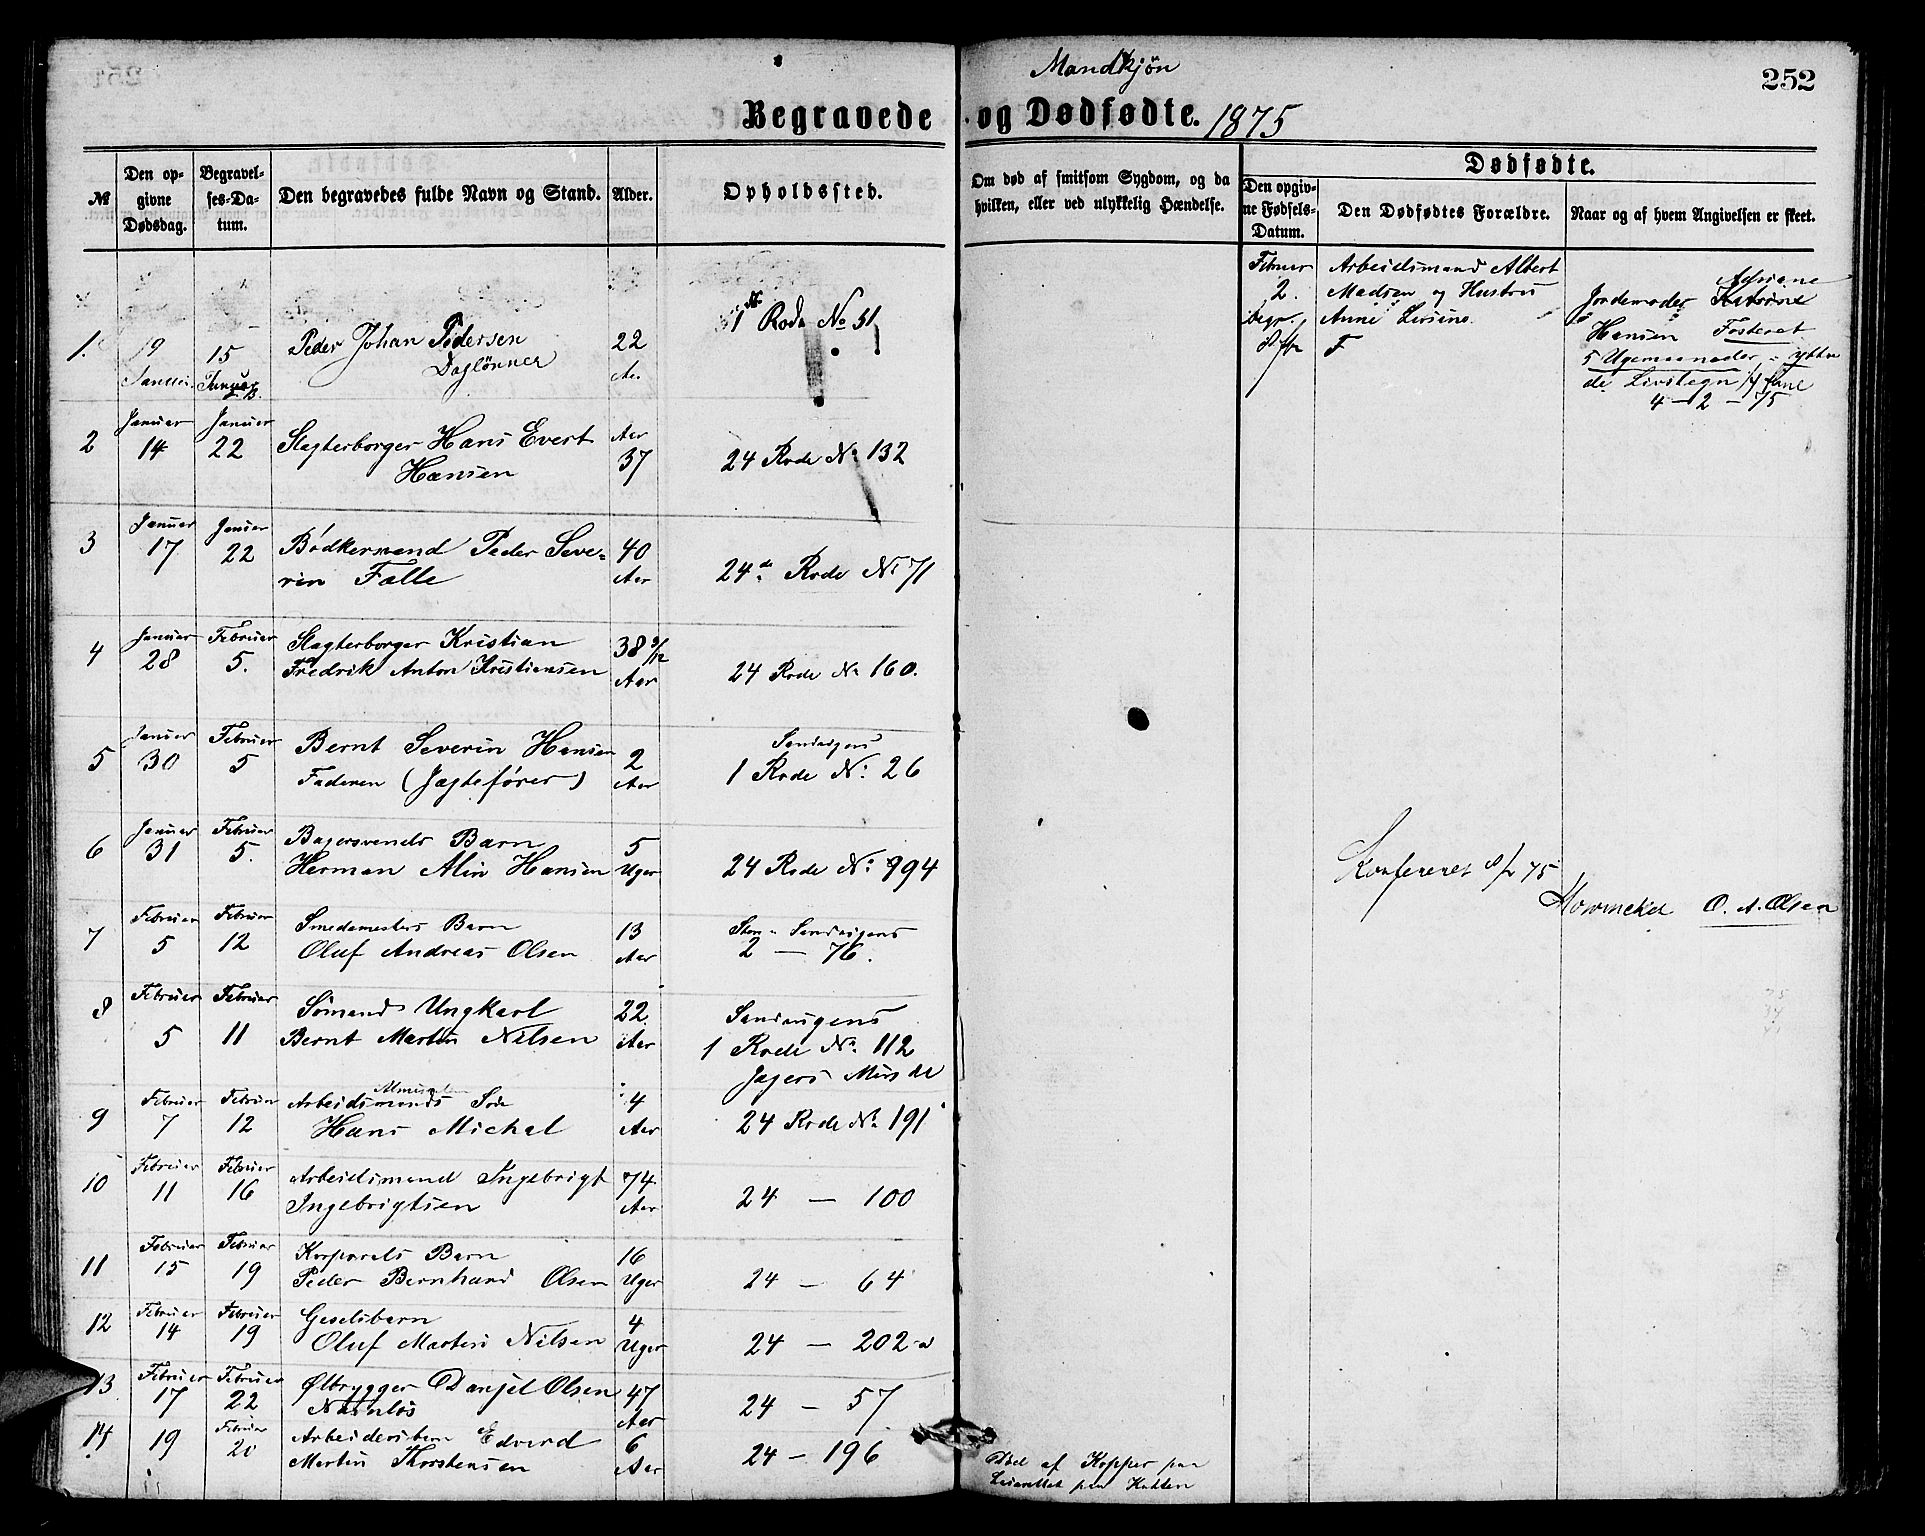 Mandkjøn
252
Begravede og Dødfødte. 1875
№
Den opgivne Dødsdag.
Begravelses-Datum.
Den begravedes fulde Navn og Stand.
Alder.
Opholdssted.
Om død af smitsom Sygdom, og da hvilken, eller ved ulykkelig Hændelse.
Dødfødte.
Den opgivne Fødsels-Datum.
Den Dødfødtes Forældre.
Naar og af hvem Angivelsen er skeet.
1. 19 15 Januar Peder Johan Pedersen 22 1ste Rode No 51
Daglønner Aar
Februar 2. begr. Arbeidsmand Albert
Madsen og Hustru
Anne
F
Adriane
Jordemoder Katrine
Hansen Fosteret
5 Ugemaaneder - ydtede
Livstegn
4 - 2 - 75
2 Januar 14 Januar 22 Slagterborger Hans Evert Aar 37 24 Rode No 132
Hansen
3 Januar 17 Januar 22 Bødkermand Peder Seve= 40 Aar 24de Rode No 71
rin Falle
4 Januar 28 Februar 5. Slagterborger Kristian 38 9/12 Aar 24 Rode No 160.
Fredrik Anton Kristiansen
5 Januar 30 Februar 5 Bernt Severin Hansen 2 Aar Sandvigens
Faderen (Jægtefører) 1 Rode No: 26
6 Januar 31 Februar 5. Bagersvends Barn 5 Uger
Herman Alin Hansen 24 Rode No: 994
7 Februar 5 Februar 12 Smedemesters Barn 13 Aar Store Sandvigens
Oluf Andreas Olsen 2 — 76.
8 Februar 5 Februar 11 Sømand Ungkarl 22 Aar Sandvigens
Bernt Martin Nilsen 1 Rode No. 112
Jægers
9 Februar 7 Februar 12 Arbeidsmands Søn 4 Aar
Hans Michal 24 Rode No. 191
10 Februar 11 Februar 16 Arbeidsmand Ingebrigt 74 Aar
Ingebrigtsen 24 — 100
11 Februar 15 Februar 19 Korporals Barn 16 Uger
Peder Bernhard Olsen 24 — 64
12 Februar 14 Februar 19 Geselsbarn 4 Uger
Oluf Martin Nilsen 24 — 202 a
13 Februar 17 Februar 22 Ølbrygger Danjel Olsen 47 Aar
Navnløs 24 — 57
14 19 Februar 20 Arbeidersbarn Edvard 6 Aar
Martin Thorstensen 24 — 196
Død af Kopper paa
Lazarettet paa
Konfereret 8/2 75
O. A. Olsen